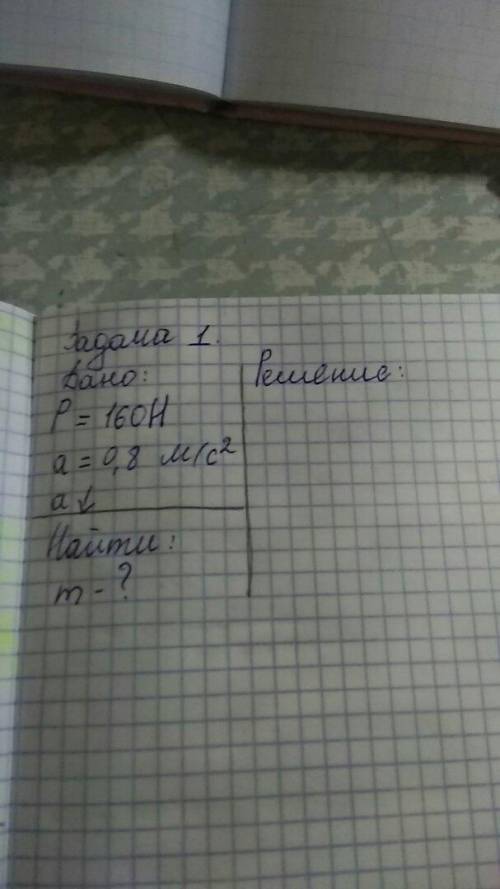 Задача 1.
Дано:
P = 160Н
a = 0,8 м/с²
a ↓
Найти:
m - ?
Решение: